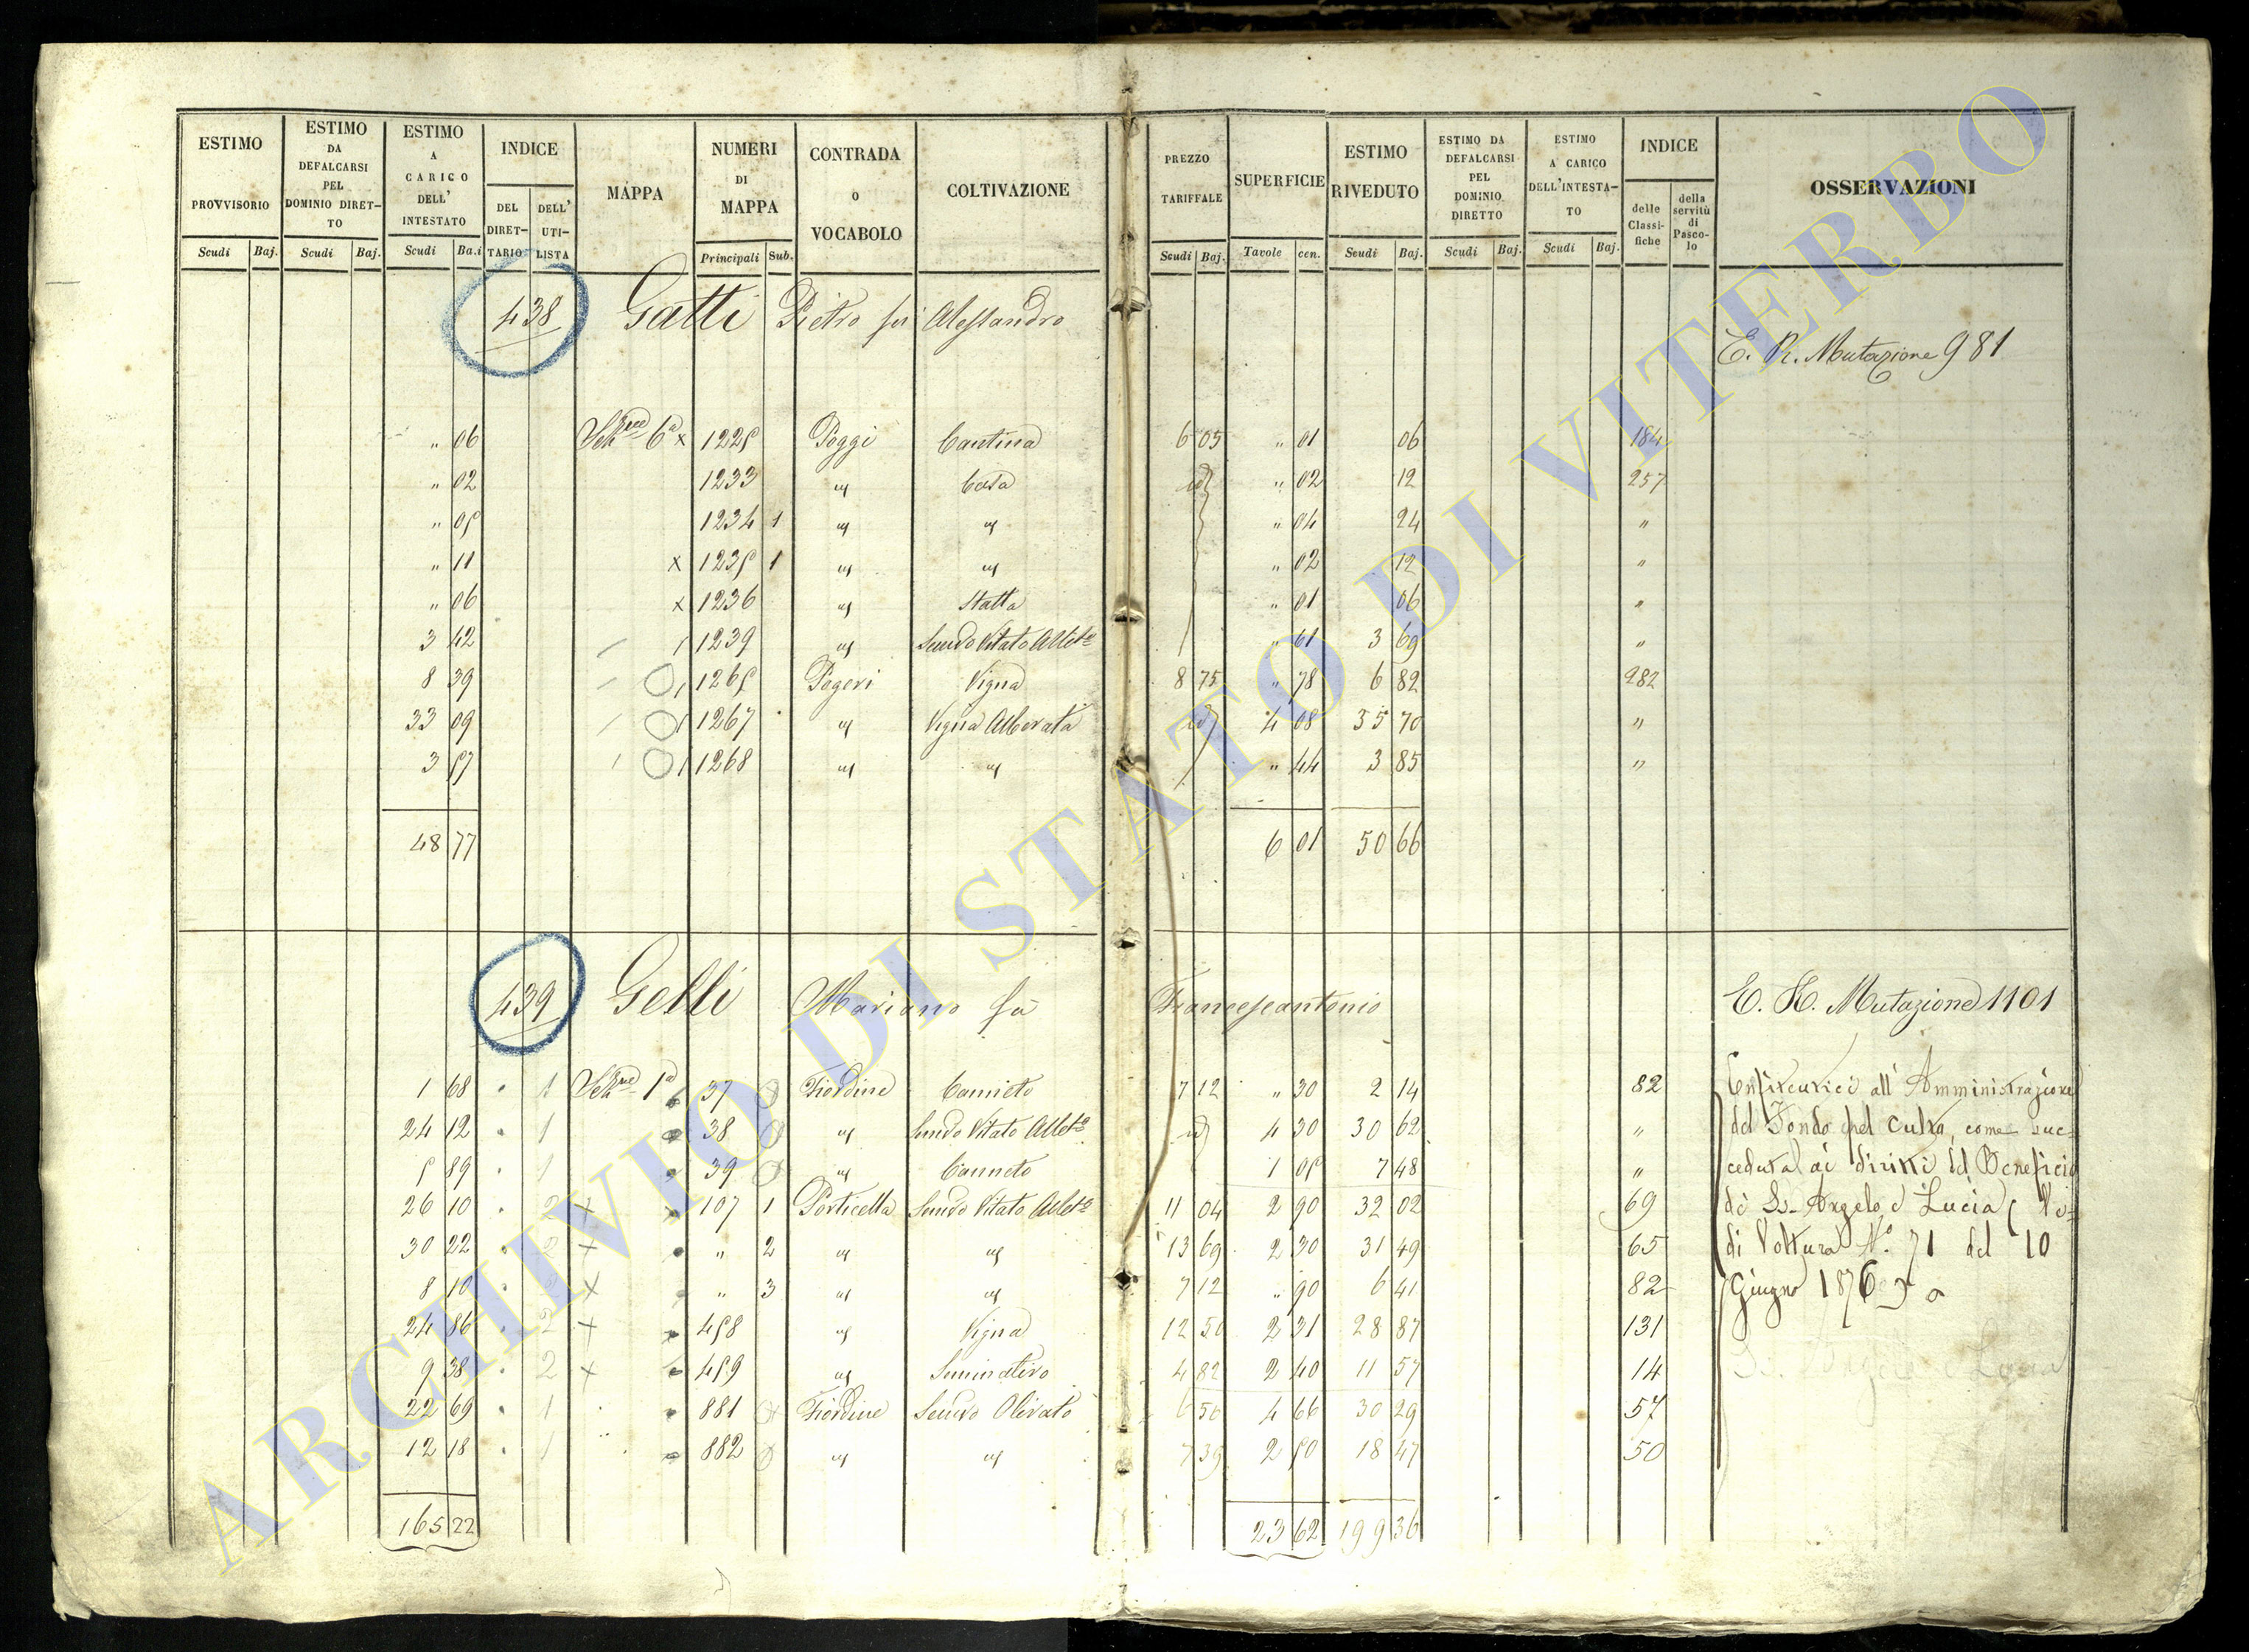 ESTIMO PROVVISORIO Scudi Baj.
ESTIMO DA DEFALCARSI PEL DOMINIO DIRETTO Scudi Baj.
ESTIMO A CARICO DELL' INTESTATO Scudi Ba.i
INDICE DEL DIRETTARIO DELL' UTILISTA
MAPPA
NUMERI DI MAPPA Principali Sub.
CONTRADA O VOCABOLO
COLTIVAZIONE
PREZZO TARIFFALE Scudi Baj.
SUPERFICIE Tavole cen.
ESTIMO RIVEDUTO Scudi Baj.
ESTIMO DA DEFALCARSI PEL DOMINIO DIRETTO Scudi Baj.
ESTIMO A CARICO DELL'INTESTATO Scudi Baj.
INDICE delle Classifiche della servitù di Pascolo
OSSERVAZIONI
438 Gatti Pietro fu Alessandro
E. R. Mutazione 981
" 06 Sez.ne 6a x 1225 Poggi Cantina 6 05 " 01 06 184
" 02 1233 " Casa id " 02 12 257
" 05 1234 1 " " " 04 24 "
" 11 x 1235 1 " " " 02 12 "
" 06 x 1236 " Stalla " 01 06 "
3 42 1239 " Semvo Vitato Albto " 61 3 69 "
8 39 1265 Pogeri Vigna 8 75 " 78 6 82 282
33 09 1267 " Vigna Alberata id 4 08 35 70 "
3 57 1268 " " " 44 3 85 "
48 77 6 01 50 66
439 Gelli Mariano fu Francescantonio
E. R. Mutazione 1101
1 68 1 Sez.ne 1a 37 Fiordine Canneto 7 12 " 30 2 14 82
24 12 1 38 " Semvo Vitato Albto id 4 30 30 62 "
5 89 1 39 " Canneto 1 05 7 48 "
26 10 2 x 107 1 Porticella Semvo Vitato Albto 11 04 2 90 32 02 69
30 22 2 x " 2 " " 13 69 2 30 31 49 65
8 10 2 x " 3 " " 7 12 " 90 6 41 82
24 86 2 x 458 " Vigna 12 50 2 31 28 87 131
9 38 2 x 459 " Seminativo 4 82 2 40 11 57 14
22 69 1 881 Fiordine Semvo Olivato 6 50 4 66 30 29 57
12 18 1 882 " " 7 39 2 50 18 47 50
165 22 23 62 199 36
Enfiteutici all'Amministrazione
del Fondo pel Culto, come suc-
ceduta ai diritti del Beneficio
di S. Angelo e Lucia
di Voltura N.o 71 del 10
Giugno 1876
ARCHIVIO DI STATO DI VITERBO